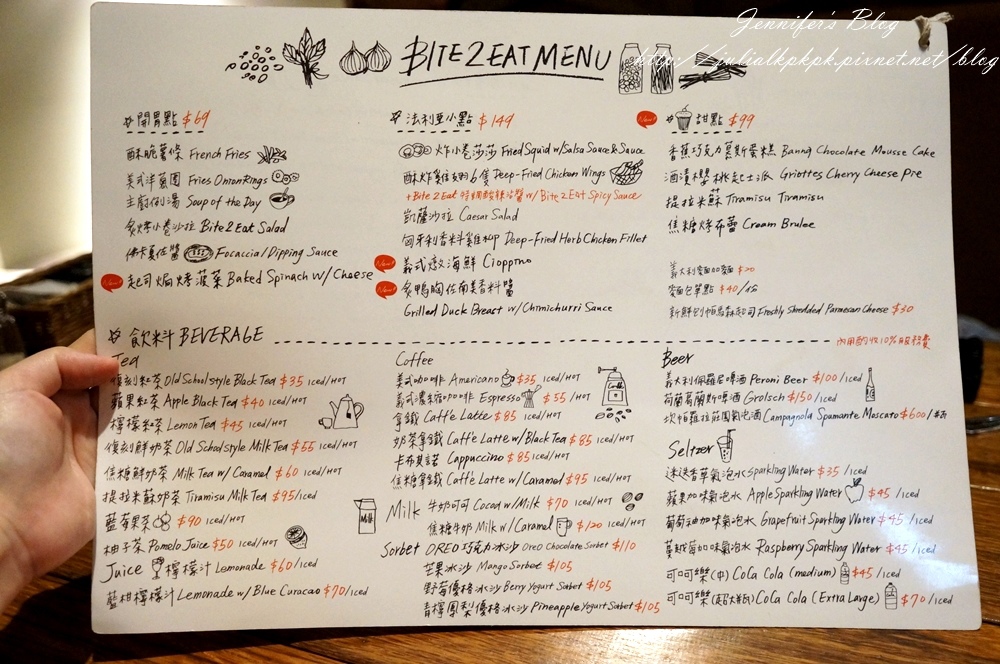 Jennifer's Blog
http://julialkpkpk.pixnet.net/blog
BITE 2 EAT MENU
開胃點 $69
酥脆薯條 French Fries
美式洋蔥圈 Fries Onion Rings
主廚例湯 Soup of the Day
炙烤小卷沙拉 Bite 2 Eat Salad
佛卡夏佐醬 Focaccia/Dipping Sauce
New! 起司焗烤菠菜 Baked Spinach w/ Cheese
法利亞小點 $149
炸小卷莎莎 Fried Squid w/Salsa Sauce & Sauce
酥炸雞翅6隻 Deep-Fried Chicken Wings
+Bite 2 Eat 特調酸辣沾醬 w/ Bite 2 Eat Spicy Sauce
凱薩沙拉 Caesar Salad
匈牙利香料雞柳 Deep-Fried Herb Chicken Fillet
New! 義式燉海鮮 Cioppino
New! 炙鴨胸佐南美香料醬
Grilled Duck Breast w/ Chmichurri Sauce
New! 甜點 $99
香蕉巧克力慕斯蛋糕 Banna Chocolate Mousse Cake
酒漬櫻桃起士派 Griottes Cherry Cheese Pie
提拉米蘇 Tiramisu Tiramisu
焦糖烤布蕾 Cream Brulee
義大利麵加麵 $20
麵包單點 $40/份
新鮮刨帕瑪森起司 Freshly Shredded Parmesan Cheese $30
飲料 BEVERAGE
內用酌收10%服務費
Tea
復刻紅茶 Old School style Black Tea $35 iced/HOT
蘋果紅茶 Apple Black Tea $40 iced/HOT
檸檬紅茶 Lemon Tea $45 iced/HOT
復刻鮮奶茶 Old School style Milk Tea $55 iced/HOT
焦糖鮮奶茶 Milk Tea w/ Caramel $60 iced/HOT
提拉米蘇奶茶 Tiramisu Milk Tea $95/iced
藍莓果茶 $90 iced/HOT
柚子茶 Pomelo Juice $50 iced/HOT
Juice 檸檬汁 Lemonade $60/iced
藍柑檸檬汁 Lemonade w/ Blue Curacao $70/iced
Coffee
美式咖啡 Americano $35 iced/HOT
義式濃縮咖啡 Espresso $55 /HOT
拿鐵 Caffè Latte $85 iced/HOT
奶茶拿鐵 Caffè Latte w/ Black Tea $85 iced/HOT
卡布其諾 Cappuccino $85 iced/HOT
焦糖拿鐵 Caffè Latte w/ Caramel $95 iced/HOT
Milk 牛奶可可 Cocoa w/ Milk $70 iced/HOT
Milk
焦糖牛奶 Milk w/ Caramel $120 iced/HOT
Sorbet OREO巧克力冰沙 Oreo Chocolate Sorbet $110
芒果冰沙 Mango Sorbet $105
野莓優格冰沙 Berry Yogurt Sorbet $105
青檸鳳梨優格冰沙 Pineapple Yogurt Sorbet $105
Beer
義大利佩羅尼啤酒 Peroni Beer $100/iced
荷蘭葛蘭斯啤酒 Grolsch $150/iced
坎帕羅拉莊園氣泡酒 Campagnola Spumante Moscato $600/
Seltzer
迷迭香草氣泡水 Sparkling Water $35 /iced
蘋果加味氣泡水 Apple Sparkling Water $45 /iced
葡萄柚加味氣泡水 Grapefruit Sparkling Water $45 /iced
蔓越莓加味氣泡水 Raspberry Sparkling Water $45/iced
可口可樂(中) CoCa Cola (medium) $45/iced
可口可樂 CoCa Cola (Extra Large) $70/iced